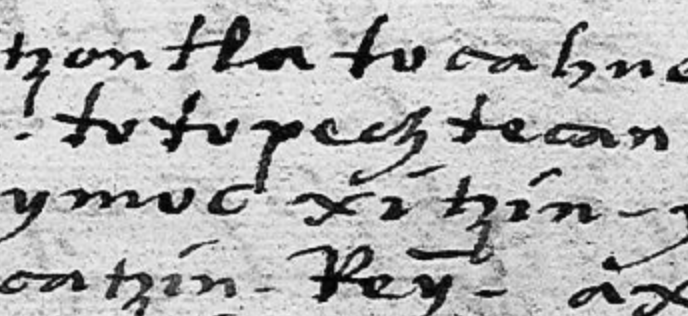 tzontla to cahue
. totopech tecan
ymoc xitzin - y
catzin - Rey - ax